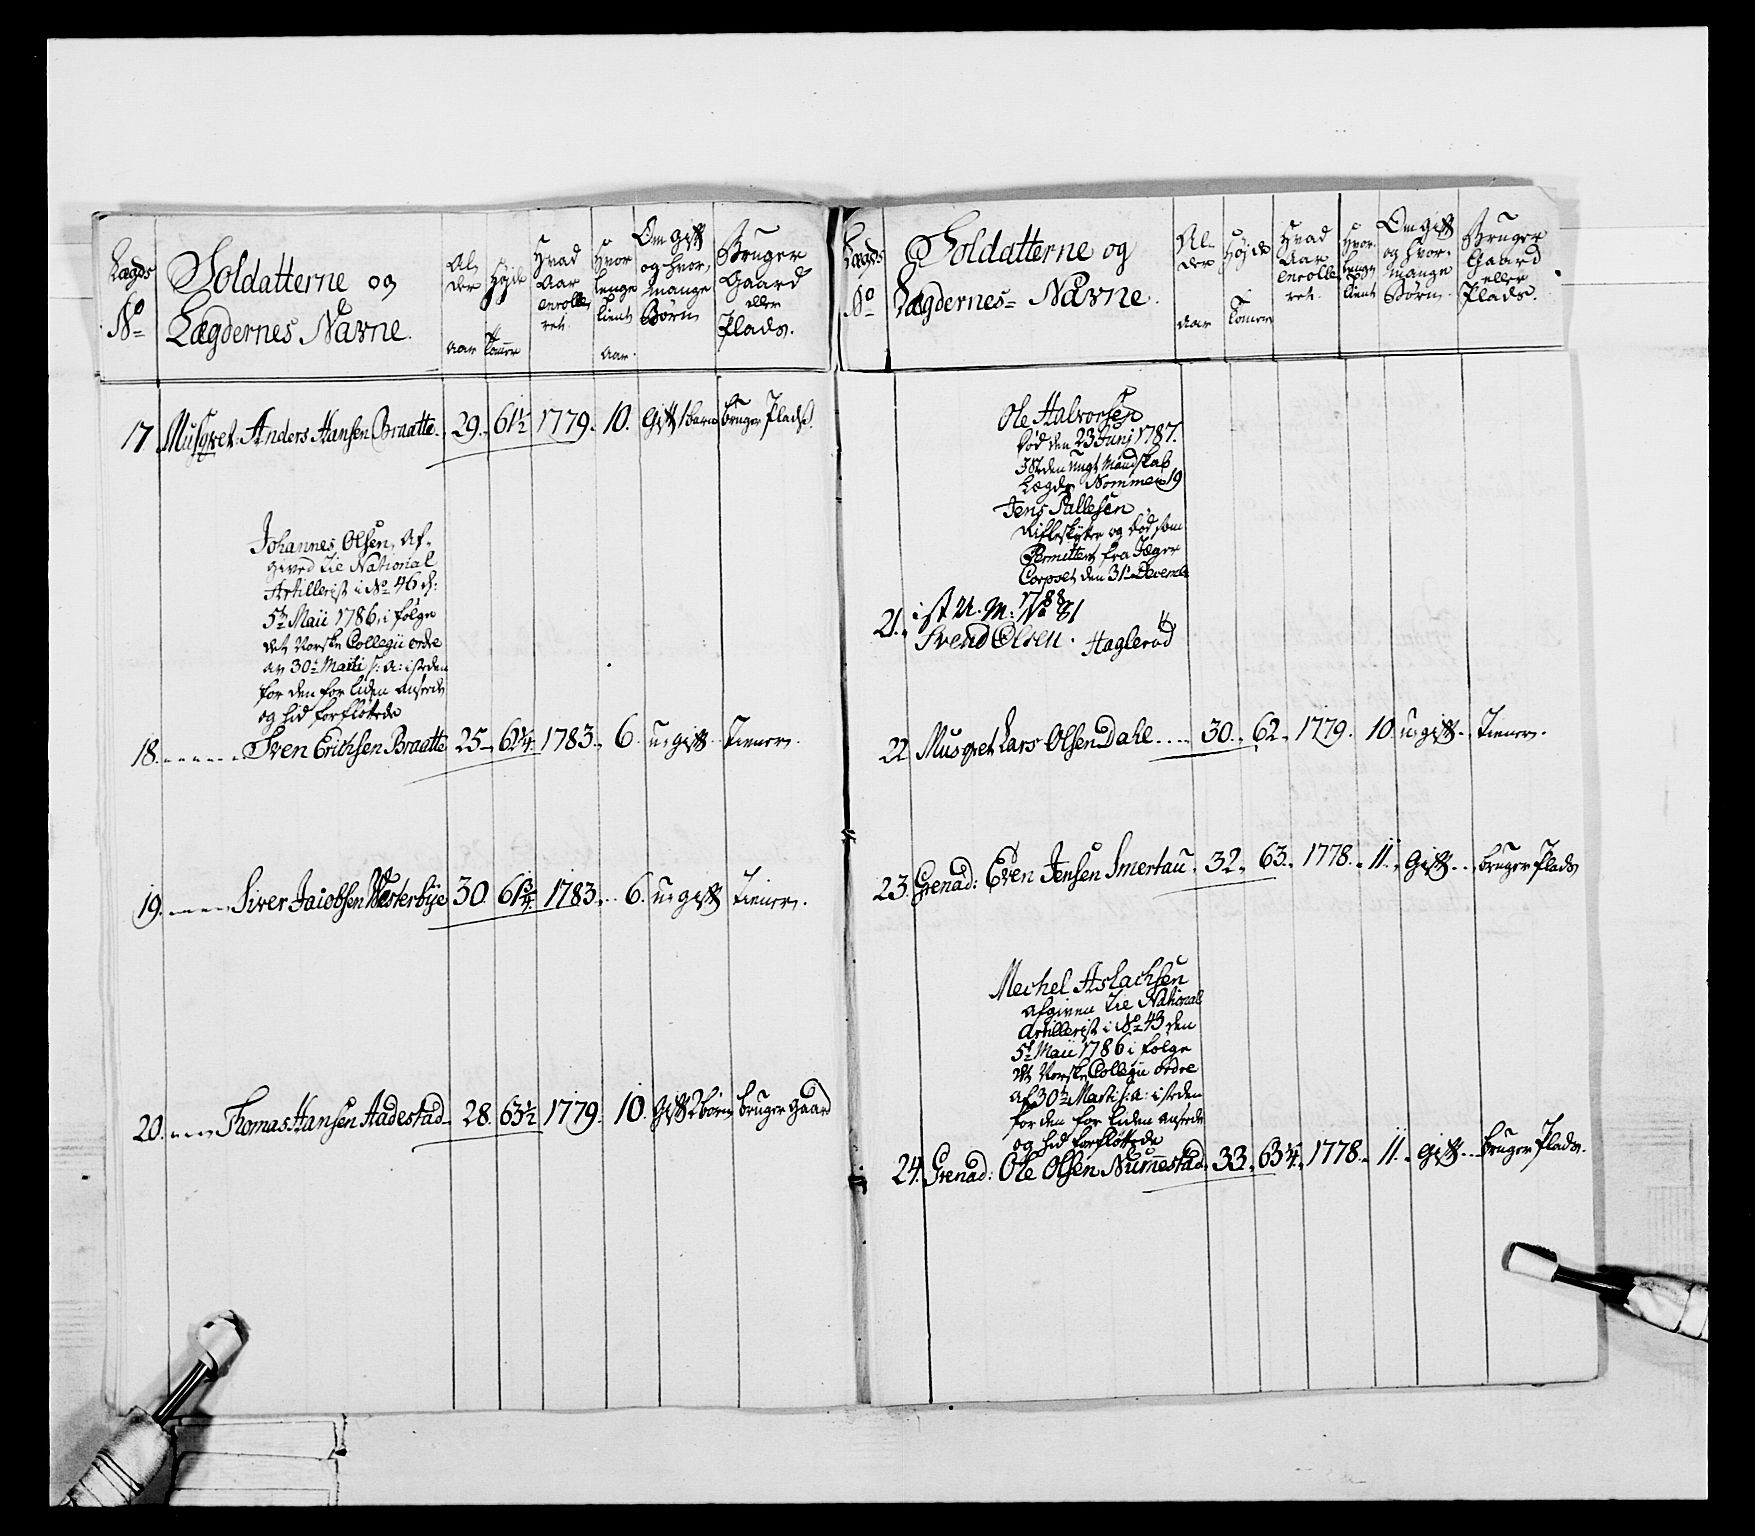 Lægds
No
Soldatterne og
Lægdernes Navne.
Al
der
aar
Høide
Tomer
Hvad
Aar
enrolle
ret
Hvor
lenge
tient
aar.
Om gift
og hvor
mange
Børn
Bruger
Gaard
eller
Plads.
17 Musqvet. Anders Hansen Braatte. 29. 61½ 1779. 10. Gift 1 barn bruger Plads.
Johannes Olsen, af-
gived til National
Artillerist i No 46 d:
5te Maii 1786, i følge
det Norske Collegii ordre
av 30te Martii s: a: isteden
for den for liden ansede
og hid forfløttede
18. Sven Erichsen Braatte 25. 61¼ 1783. 6. ugift. tiener.
19. Siver Jacobsen Westerbÿe 30. 61¾ 1783. 6. ugift tiener.
20. Thomas Hansen Aadestad 28. 63½ 1779. 10. Gift 2 børn bruger gaard
Lægds
No
Soldatterne og
Lægdernes Navne.
Al-
der
aar
Høide
Tomer
Hvad
Aar
enrolle
ret.
Hvor
lenge
tient
Om gift
og hvor-
mange
Børn.
Bruger
Gaard
eller
Plads.
Ole Halvorsen
død den 23 Junj 1787.
Isteden ungt Mandskab
Lægds Nommer 19
Jens Pallesen
Rifleskÿtter og død som
Permittert fra Jæger
Corpset den 31te Decembr
1788
21. ist U. M: No 81
Svend Olsen. Haglerød
22 Musqvet Lars Olsen Dahl.... 30. 62. 1779. 10. ugift.. tiener.
23. Grenad: Even Jensen Smertau. 32. 63. 1778. 11. Gift... bruger Plads
Mechel Aslachsen
afgiven til National
Artillerist i No 43 den
5te Maii 1786 i følge
det Norske Collegii ordre
af 30te Martii s: a: isteden
for den for liden ansede
og hid forfløttede
24. Grenad: Ole Olsen Nummestad. 33. 63¼. 1778. 11. gift... bruger Plads.